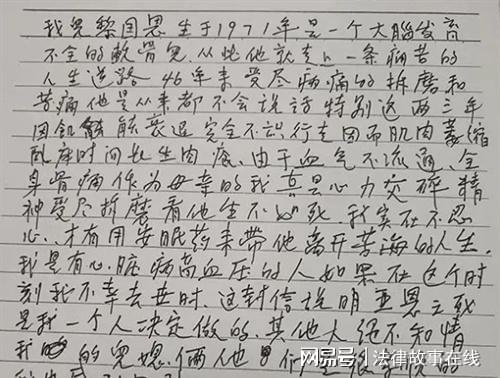 我儿黎国恩生于1971年,是一个大脑发育
不全的軟骨兒,从此他就走上一条病苦的
人生道路 46年来受尽病痛的折磨和
苦痛他是从来都不会说话特别这两三年
因机能衰退完全不识行走因而肌肉萎缩
臥床时间长生肉疮,由于血气不流通,全
身骨病作为母亲的我真是心力交碎精
神受尽折磨看他生不如死,我实在不忍
心,才有用安眠药来带他离开苦海的人生,
我是有心脏病高血压的人如果在这个时
刻我不幸去世时,这封信说明 恩之死
是我一个人决定做的,其他人绝不知情
我的兒媳俩他们是很孝顺的
网易号 | 法律故事在线